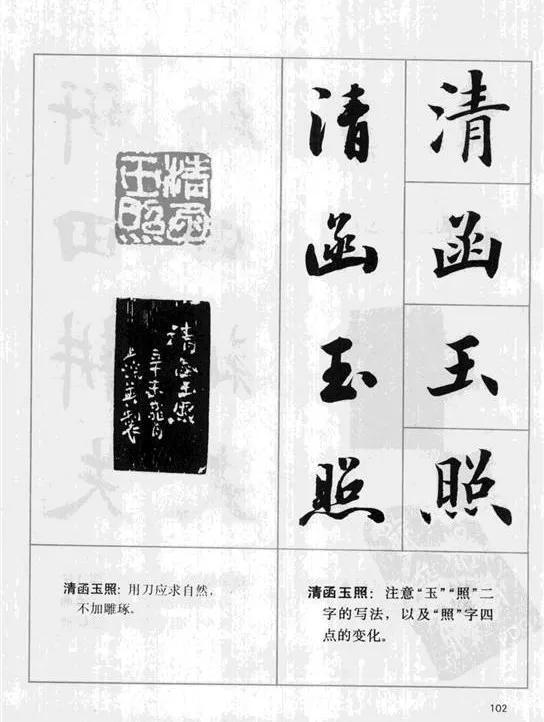 清函玉照
清函玉照
清函玉照
清函玉照
清函玉照:用刀应求自然,
不加雕琢。
清函玉照:注意“玉”“照”二
字的写法,以及“照”字四
点的变化。
102